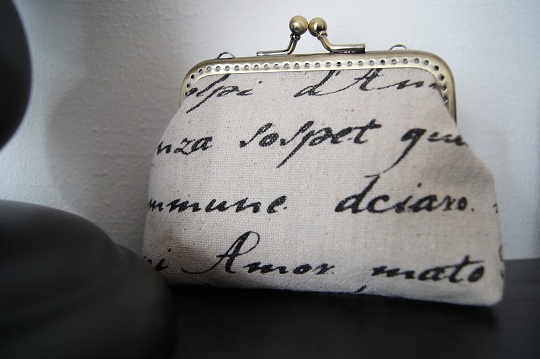 olpi d'Am
nza sospet que
mmune dciaro.
i Amor mato